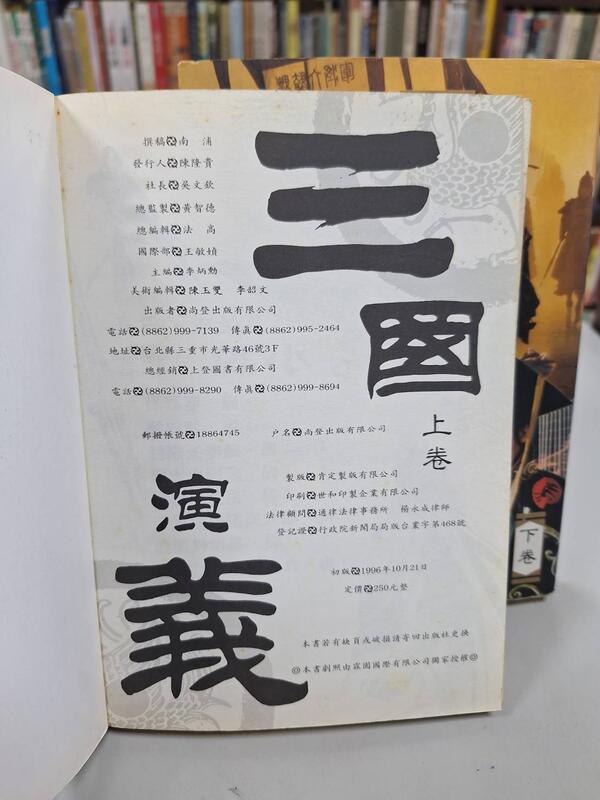 三國
上卷
演義
撰稿 南 浦
發行人 陳隆貴
社長 吳文欽
總監製 黃智德
總編輯 法 高
國際部 王敏塡
主編 李炳勳
美術編輯 陳玉雙 李韶文
出版者 尚登出版有限公司
電話 (8862)999-7139 傳眞 (8862)995-2464
地址 台北縣三重市光華路46號3F
總經銷 上登圖書有限公司
電話 (8862)999-8290 傳眞 (8862)999-8694
郵撥帳號 18864745 戶名 尚登出版有限公司
製版 肯定製版有限公司
印刷 世和印製企業有限公司
法律顧問 通律法律事務所 楊永成律師
登記證 行政院新聞局局版台業字第468號
初版 1996年10月21日
定價 250元整
本書若有缺頁或破損請寄回出版社更換
◎本書劇照由霖園國際有限公司獨家授權◎
下卷